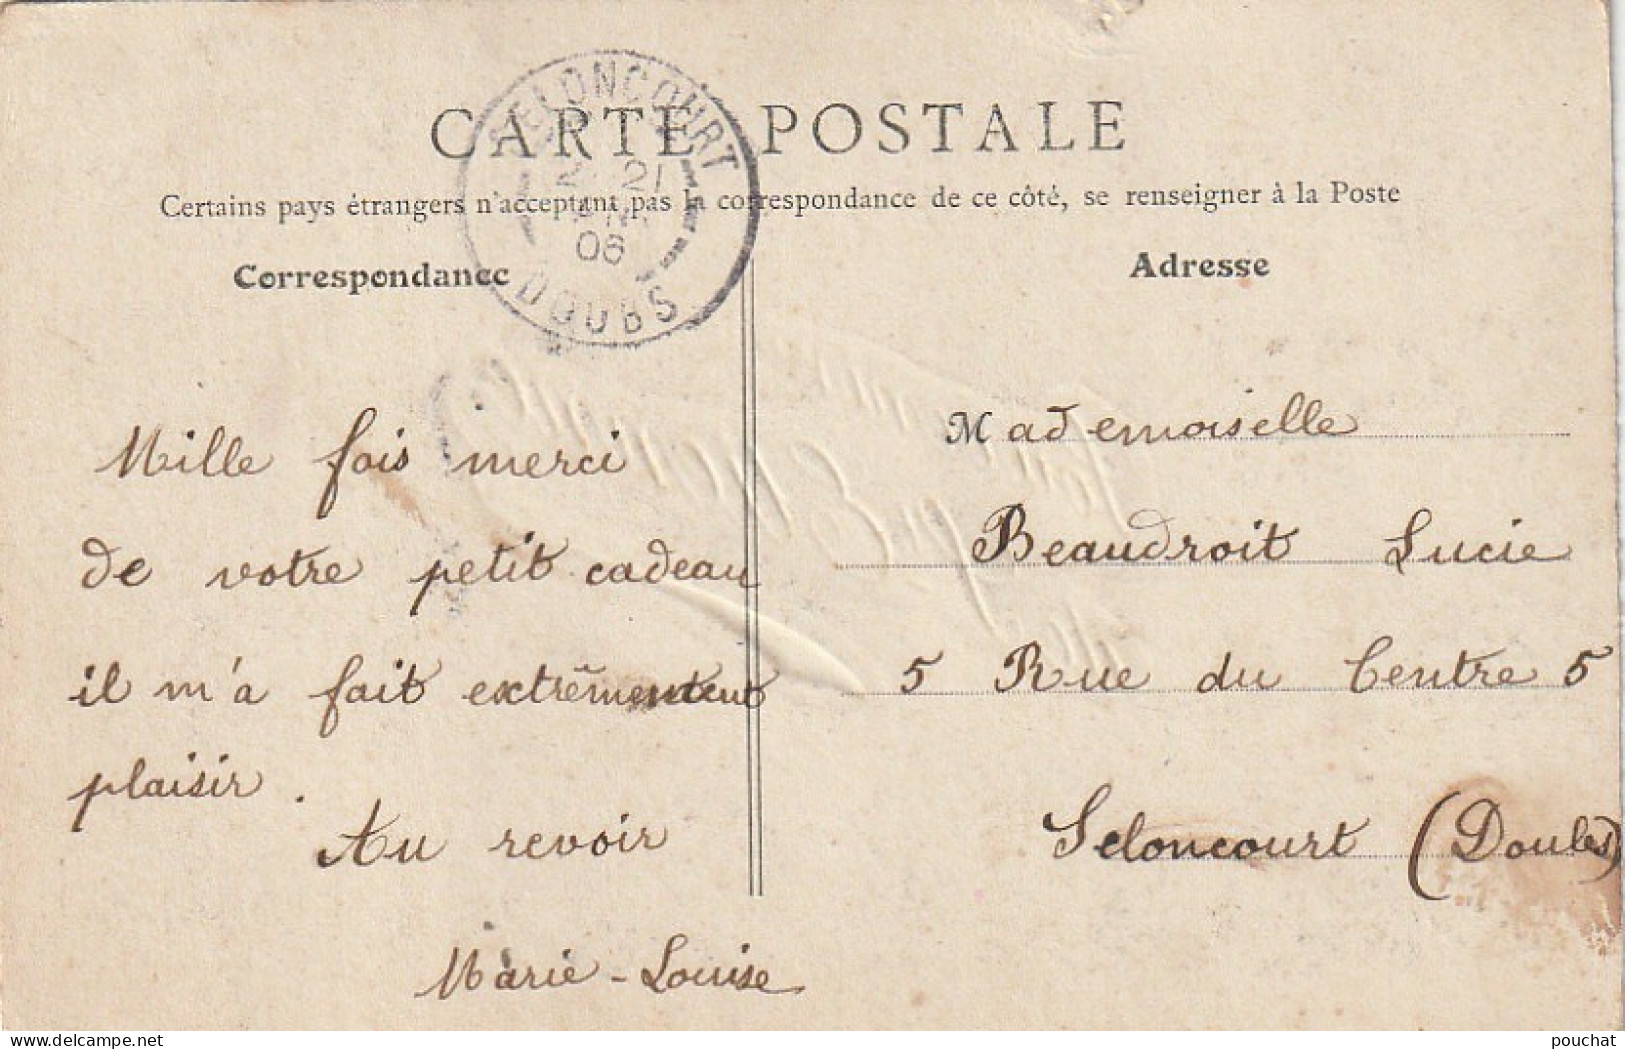 CARTE POSTALE
Certains pays étrangers n'acceptant pas la correspondance de ce côté, se renseigner à la Poste
SELONCOURT
21
06
DOUBS
Correspondance
Mille fois merci
de votre petit cadeau
il m'a fait extrêmement
plaisir.
Au revoir
Marie-Louise
Adresse
Mademoiselle
Beaudroit Lucie
5 Rue du Centre 5
Seloncourt (Doubs)
delcampe.net
pouchat